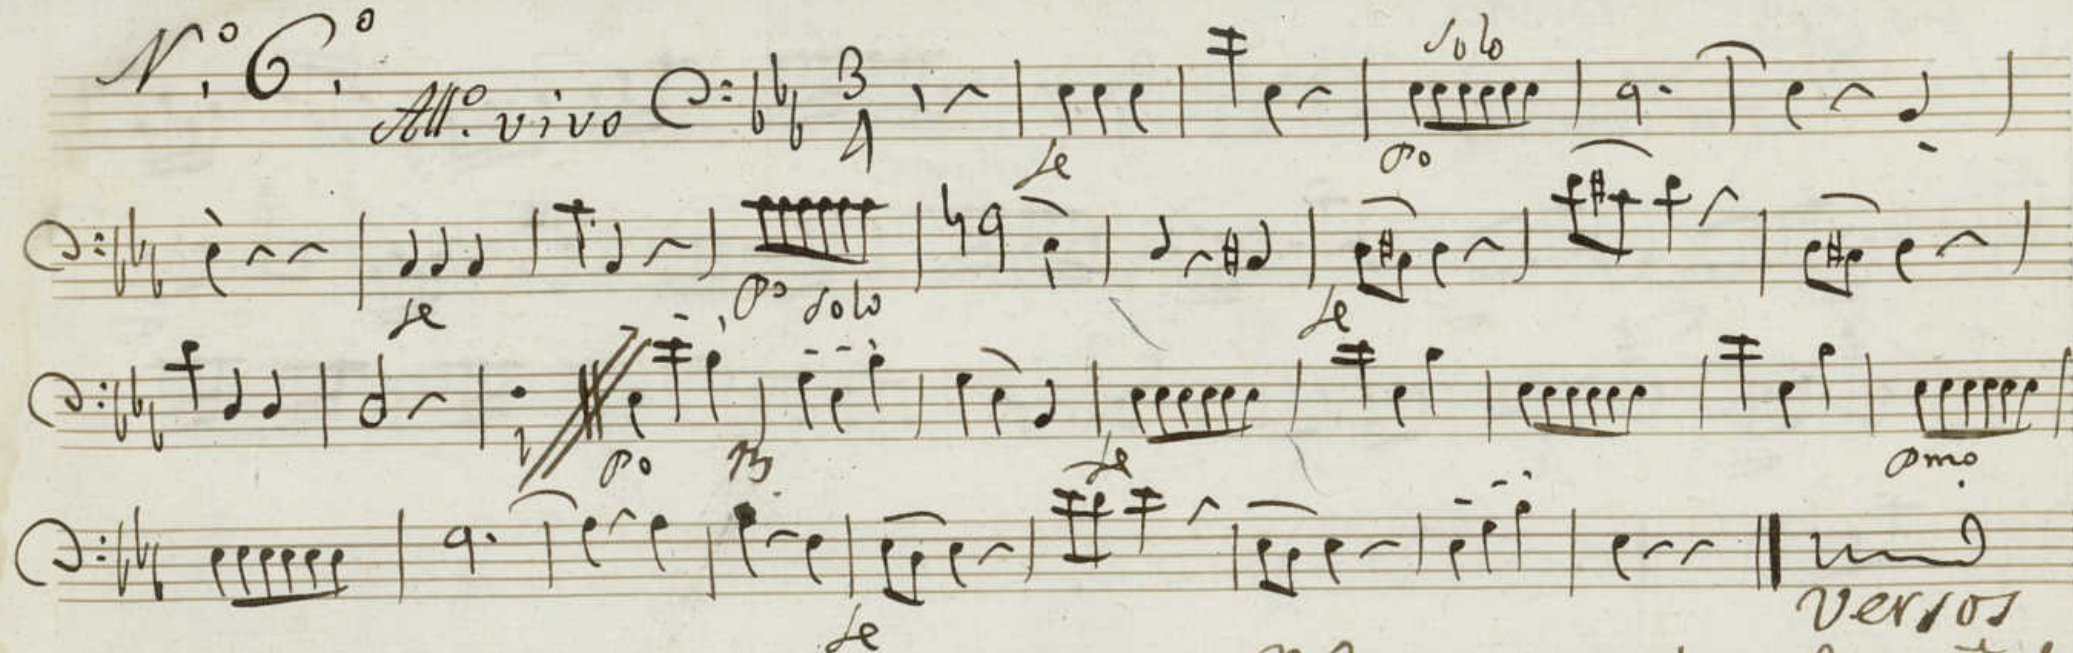 N.º 6.º All.º vivo 3/4 solo
fe Po
fe Po solo fe
Po fe Pmo
fe
versos